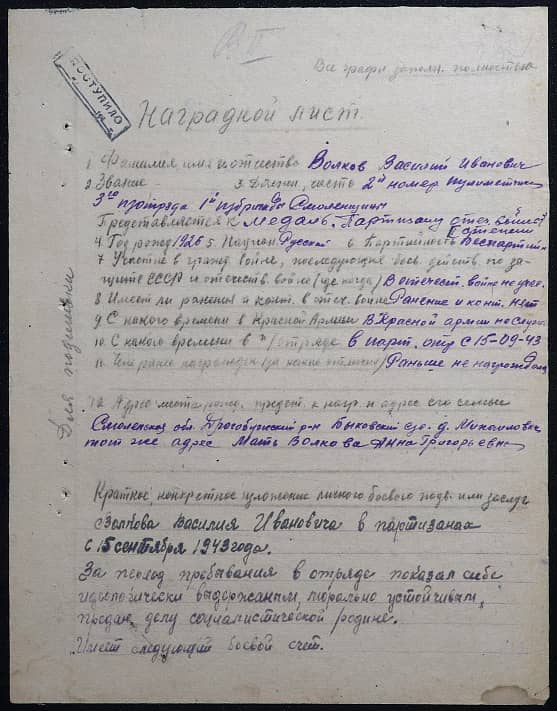 В II
Все графы заполн. полностью
ПОСТУПИЛО
Наградной лист.
1. Фамилия, имя и отчество Волков Василий Иванович
2. Звание - 3. Должн., часть 2й номер пулеметчик
3го п/отряда 1й п/бригады Смоленщины
Представляется к медаль „Партизану отеч. войны"
II степени
4. Год рожд. 1926 5. Национ. Русский 6. Партийность Беспартийн.
7. Участие в гражд. войне, последующих боев. действ. по за-
щите СССР и отечеств. войне (где когда) В отечест. войне не учас.
8. Имеет ли ранения и конт. в отеч. войне Ранение и конт. нет
9. С какого времени в Красной Армии В Красной армии не служ.
10. С какого времени в п/отряде в парт. отр. с 15-09-43
11. Чем ранее награжден (за какие отличия) Раньше не награждался
12. Адрес места рожд. предст. к нагр. и адрес его семьи
Смоленская обл. Дрогобужский р-н Быковский с/с. д. Михайловка
тот же адрес Мать Волкова Анна Григорьевна
Для подшивки
Краткое, конкретное изложение личного боевого подв. или заслуг
Волкова Василия Ивановича в партизанах
с 15 сентября 1943 года.
За период пребывания в отряде показал себя
идеологически выдержаным, морально устойчивым,
предан делу социалистической родине.
Имеет следующий боевой счет.